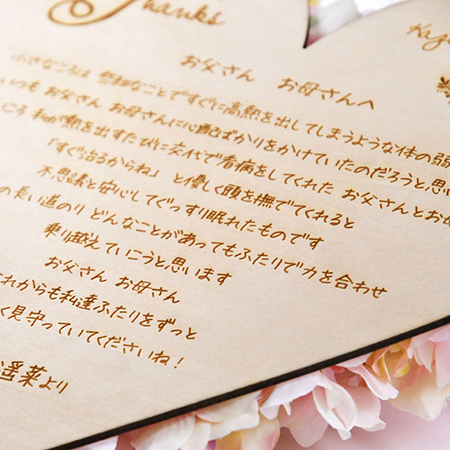 Thanks
お父さん お母さんへ
小さなころは 些細なことですぐに高熱を出してしまうような体の弱
いつも お父さん お母さんに心配ばかりをかけていたのだろうと思い
ころ 私が熱を出すたびに交代で看病をしてくれた お父さんとお母
「すぐ治るからね」 と優しく頭を撫でてくれると
不思議と安心してぐっすり眠れたものです
の長い道のり どんなことがあってもふたりで力を合わせ
乗り越えていこうと思います
お父さん お母さん
れからも私達ふたりをずっと
く見守っていてくださいね！
遥菜より